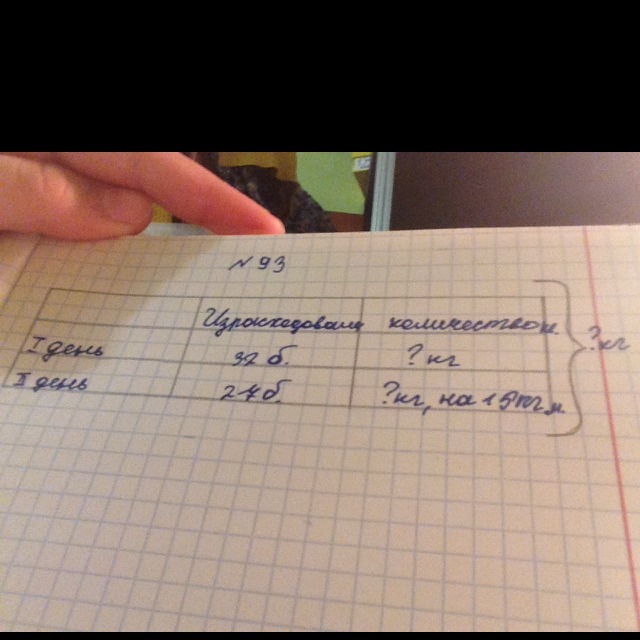 N 93
Израсходовали количество
I день 32 б. ? кг
? кг
II день 24 б. ? кг, на